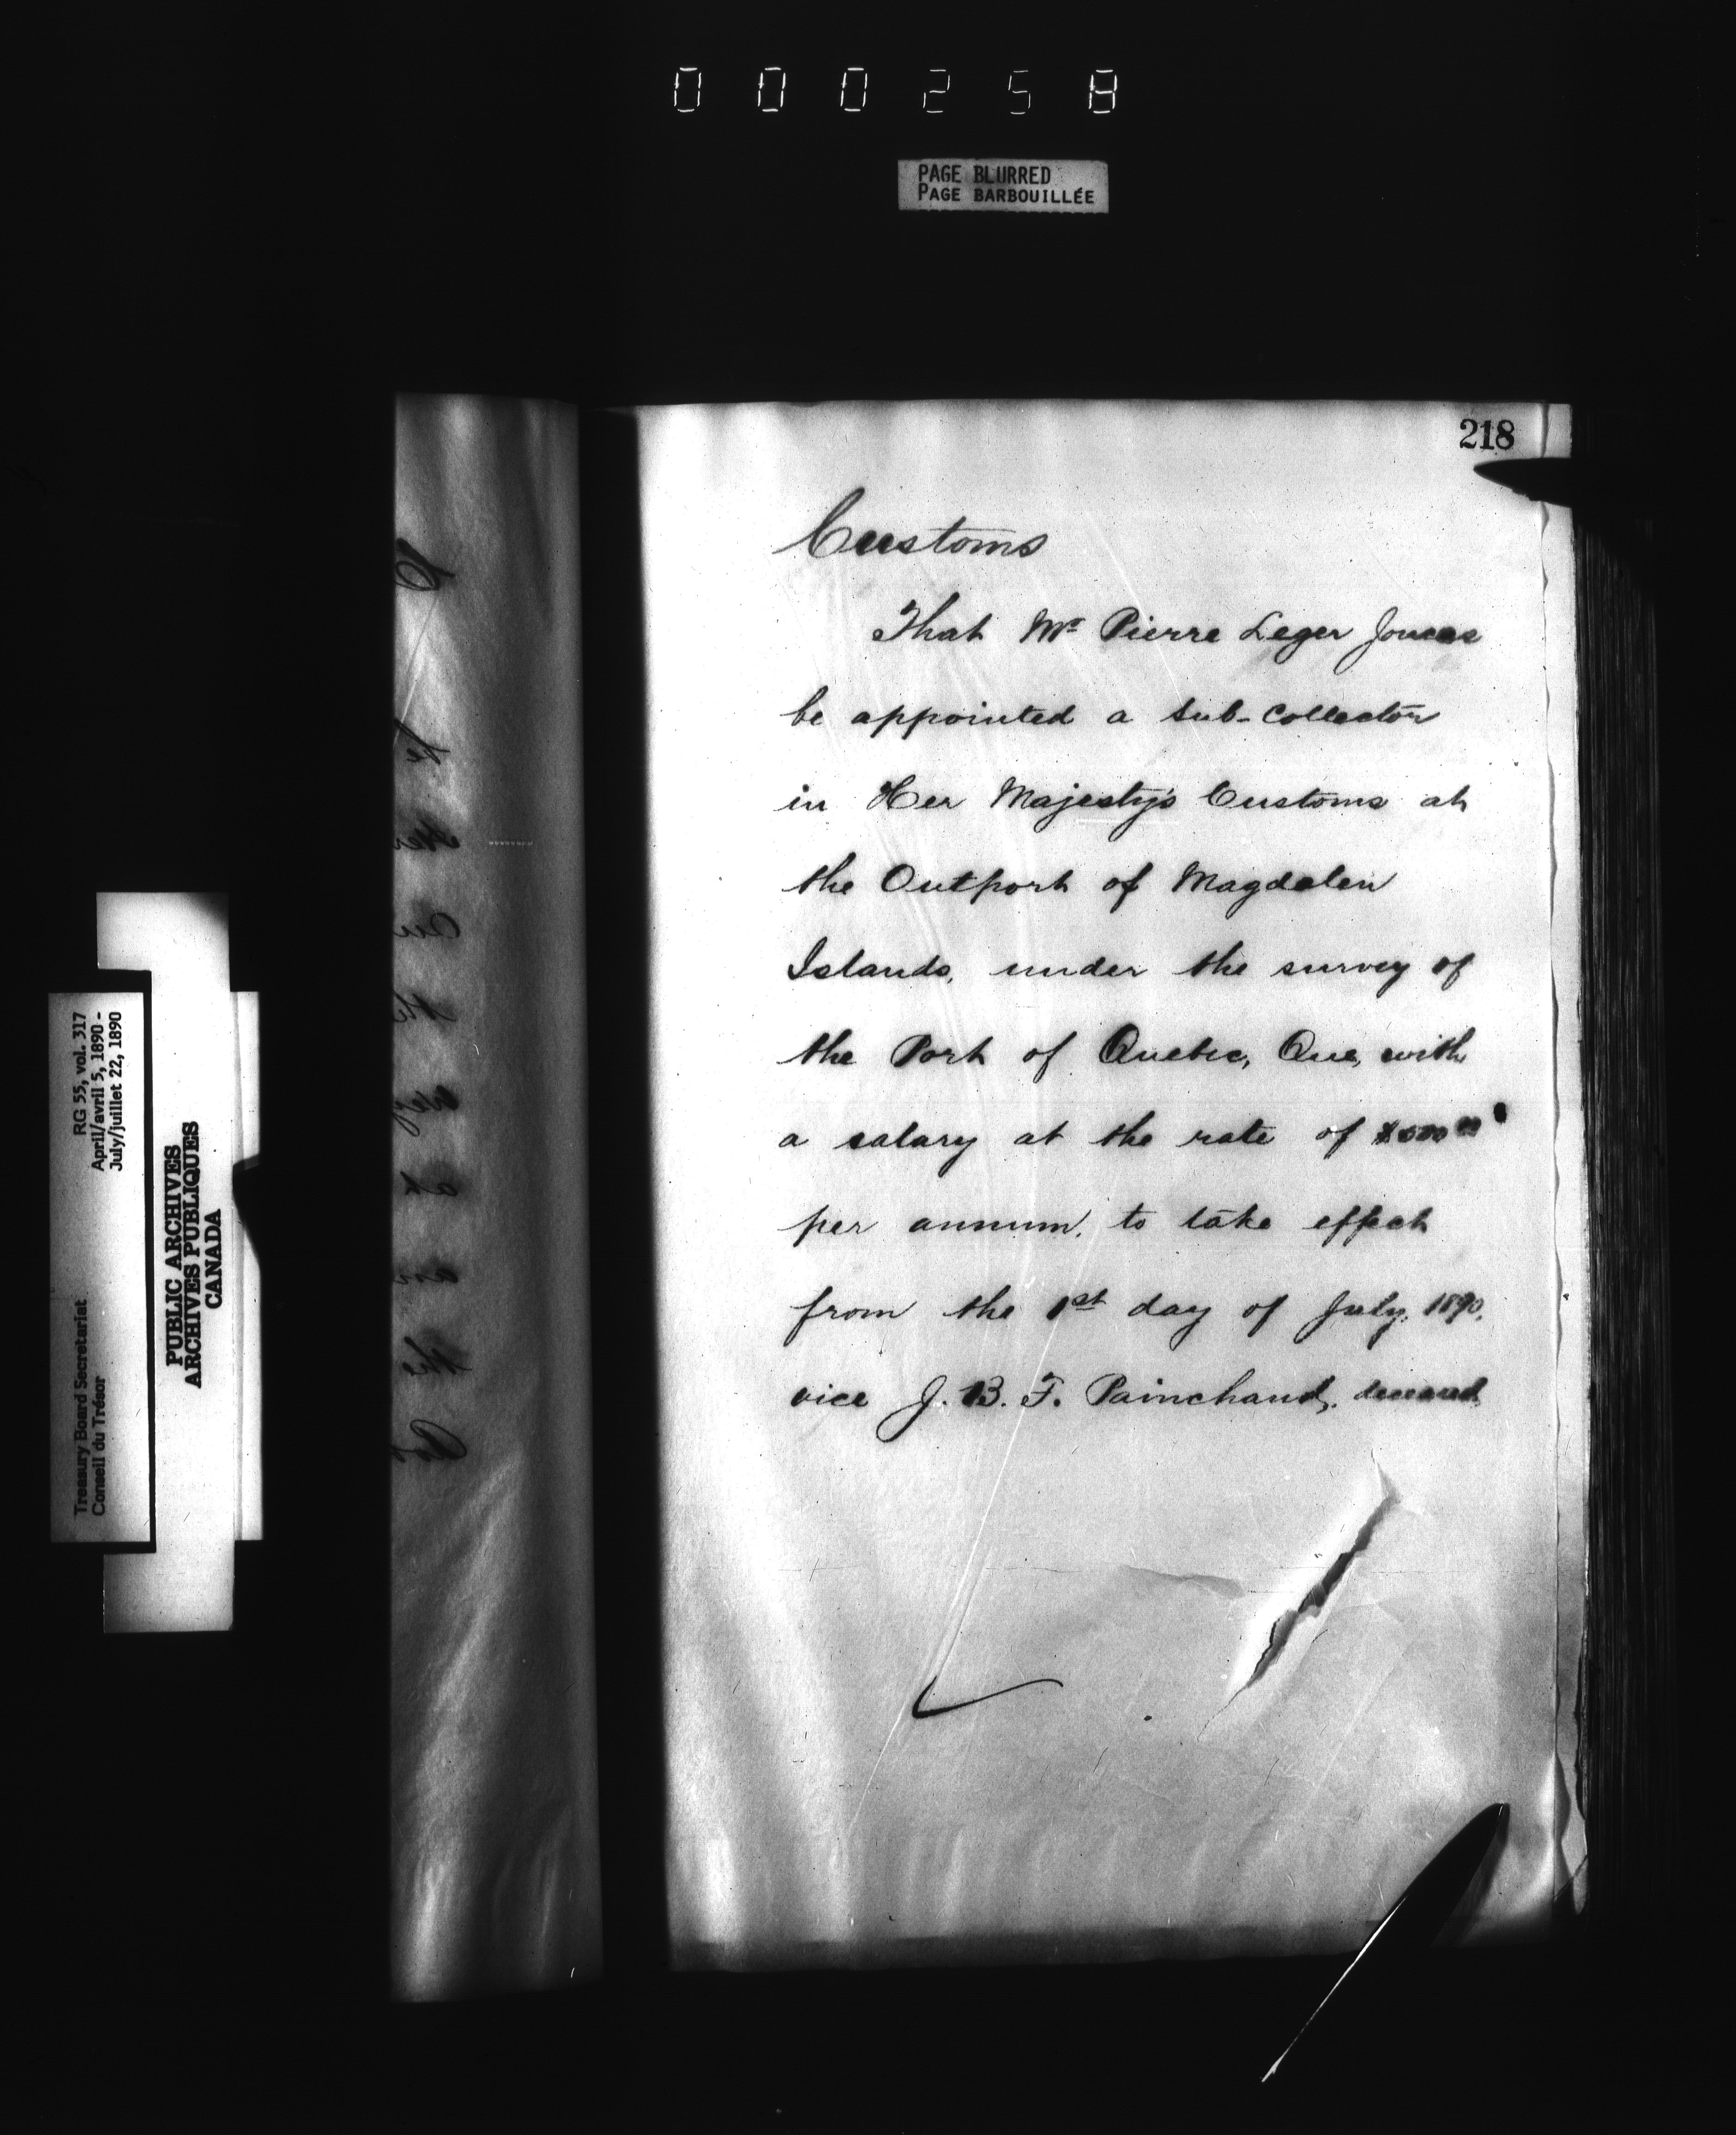 000258
PAGE BLURRED
PAGE BARBOUILLÉE
218
Customs
That Mr Pierre Leger Joncas
be appointed a Sub-Collector
in Her Majesty's Customs at
the Outport of Magdalen
Islands, under the survey of
the Port of Quebec, Que, with
a salary at the rate of $500 00
per annum, to take effect
from the 1st day of July, 1890,
vice J. B. F. Painchaud, deceased
RG 55, vol. 317
April/avril 5, 1890 -
July/juillet 22, 1890
Treasury Board Secretariat
Conseil du Trésor
PUBLIC ARCHIVES
ARCHIVES PUBLIQUES
CANADA